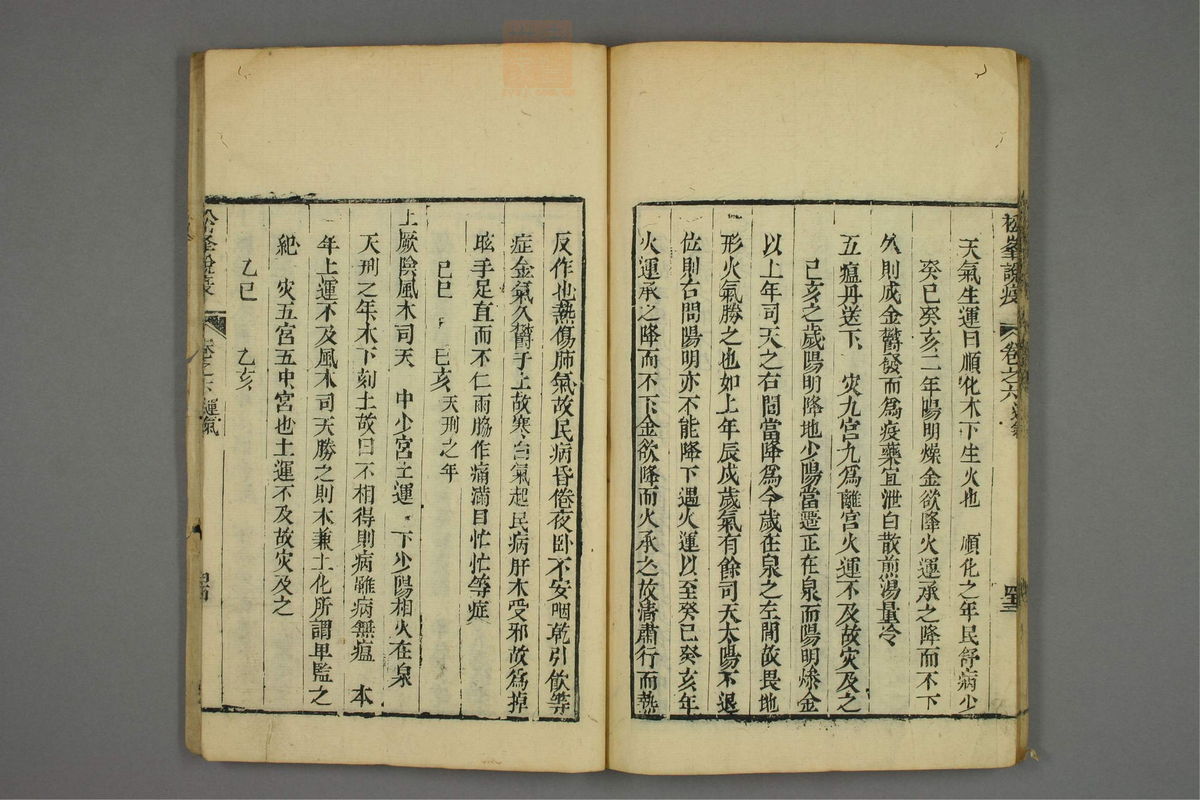 松峯說疫
卷之六 運氣
天氣生運曰順化木下生火也 順化之年民舒病少
癸巳癸亥二年陽明燥金欲降火運承之降而不下
久則成金鬱發而爲疫藥宜泄白散煎湯量冷
五瘟丹送下 灾九宮九爲離宮火運不及故灾及之
己亥之歲陽明降地少陽當遷正在泉而陽明燥金
以上年司天之右間當降爲今歲在泉之左間故畏地
形火氣勝之也如上年辰戌歲氣有餘司天太陽不退
位則右間陽明亦不能降下遇火運以至癸巳癸亥年
火運承之降而不下金欲降而火承之故清肅行而熱
反作也熱傷肺氣故民病昏倦夜卧不安咽乾引飲等
症金氣久鬱于上故寒白氣起民病肝木受邪故爲掉
眩手足直而不仁兩脇作痛滿目忙忙等症
己巳 己亥 天刑之年
上厥陰風木司天 中少宮土運 下少陽相火在泉
天刑之年木下剋土故曰不相得則病雖病無瘟 本
年上運不及風木司天勝之則木兼土化所謂卑監之
紀 灾五宮五中宮也土運不及故灾及之
乙巳 乙亥
松峯說疫
卷之六 運氣